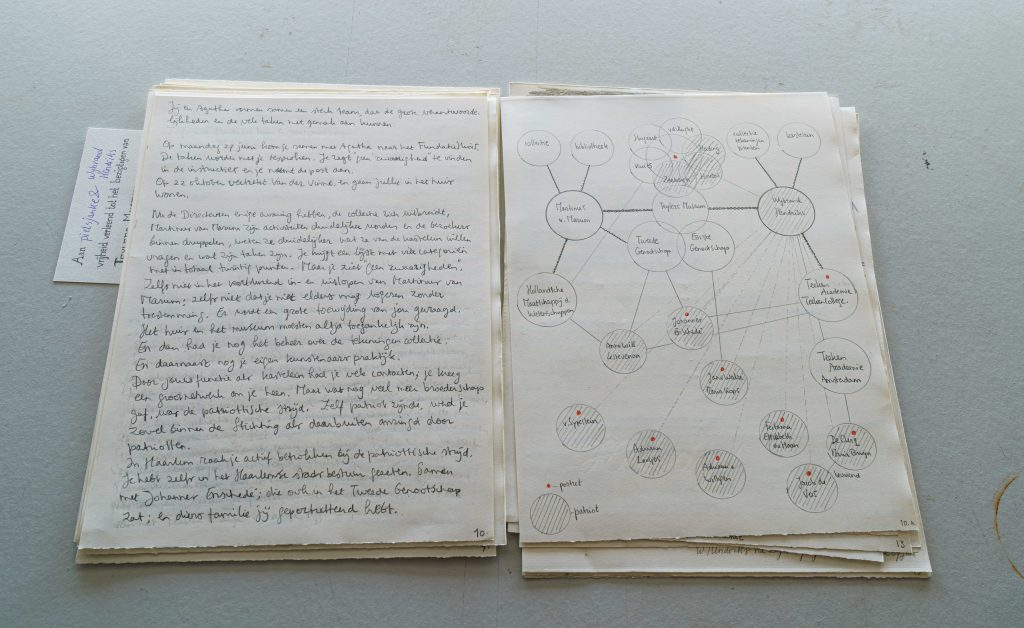 Jij en Agatha vormen samen een sterk team, dat de grote verantwoorde-
lijkheden en de vele taken met gemak aan kunnen.
Op maandag 27 juni kom je samen met Agatha naar het Fundatiehuis.
De taken worden met je besproken. Je zegt geen zwarigheid te vinden
in de instructies en je neemt de post aan.
Op 22 oktober vertrekt Van der Vinne, en gaan jullie in het huis
wonen.
Nu de Directeuren enige ervaring hebben, de collectie zich uitbreidt,
Martinus van Marum zijn activiteiten duidelijker worden en de bezoekers
binnen druppelen, weten ze duidelijker wat ze van de kastelein willen
vragen en wat zijn taken zijn. Je krijgt een lijst met vele categorieën
met in totaal twintig punten. Maar je ziet "geen zwarigheden".
Zelfs niet in het voortdurend in- en uitlopen van Martinus van
Marum; zelfs niet dat je niet elders mag logeren zonder
toestemming. Er wordt een grote toewijding van jou gevraagd.
Het huis en het museum moesten altijd toegankelijk zijn.
En dan had je nog het beheer over de tekeningen collectie.
En daarnaast nog je eigen kunstenaars praktijk.
Door jouw functie als kastelein had je vele contacten; je kreeg
een groot netwerk om je heen. Maar wat nog veel meer broederschap
gaf, was de patriottische strijd. Zelf patriot zijnde, werd je
zowel binnen de Stichting als daarbuiten omringd door
patriotten.
In Haarlem raak je actief betrokken bij de patriottische strijd.
Je hebt zelfs in het Haarlemse stadsbestuur gezeten. Samen
met Johannes Enschedé; die ook in het Tweede Genootschap
zat; en diens familie jij geportretteerd hebt.
10.
Aan pietsjanke & Wybrand Hendriks
vrijheid verleend tot het bezigtigen van
collectie
bibliotheek
collectie
tekeningen
prenten
kastelein
Martinus
v. Marum
Teylers Museum
Wybrand
Hendriks
Tweede
Genootschap
Eerste
Genootschap
Hollandsche
Maatschappij d.
Wetenschappen
Johannes
Enschedé
Teken
Academie
Tekencollege
Teken
Academie
Amsterdam
v. Spectein
Adriaan
Jacob de
Vos
• - portret
- patriot
10.a
13